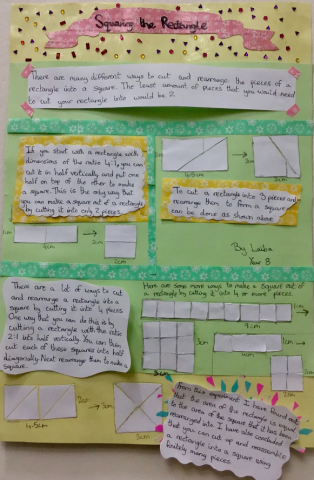 Squaring the Rectangle
There are many different ways to cut and rearrange the pieces of a
rectangle into a square. The least amount of pieces that you would need
to cut your rectangle into would be 2.
If you start with a rectangle with
dimensions of the ratio 4:1, you can
cut it in half vertically and put one
half on top of the other to make
a square. This is the only way that
you can make a square out of a rectangle
by cutting it into only 2 pieces.
4cm
2cm
4.5cm
To cut a rectangle into 3 pieces and
rearrange them to form a square
can be done as shown above
By Laiba
Year 8
There are a lot of ways to cut
and rearrange a rectangle into a
square by cutting it into 4 pieces.
One way that you can do this is by
cutting a rectangle with the ratio
2:1 into half vertically. You can then
cut each of those squares into half
diagonally. Next rearrange them to make a
Square.
Here are some more ways to make a Square out of
a rectangle by cutting it into 4 or more pieces.
9cm
3cm
4cm
2cm
4.5cm
3cm
3cm
From this experiment I have found out
that the area of the rectangle is equal
to the area of the square that it has been
rearranged into. I have also concluded
that you can cut up and reassemble
a rectangle into a square using
finitely many pieces.